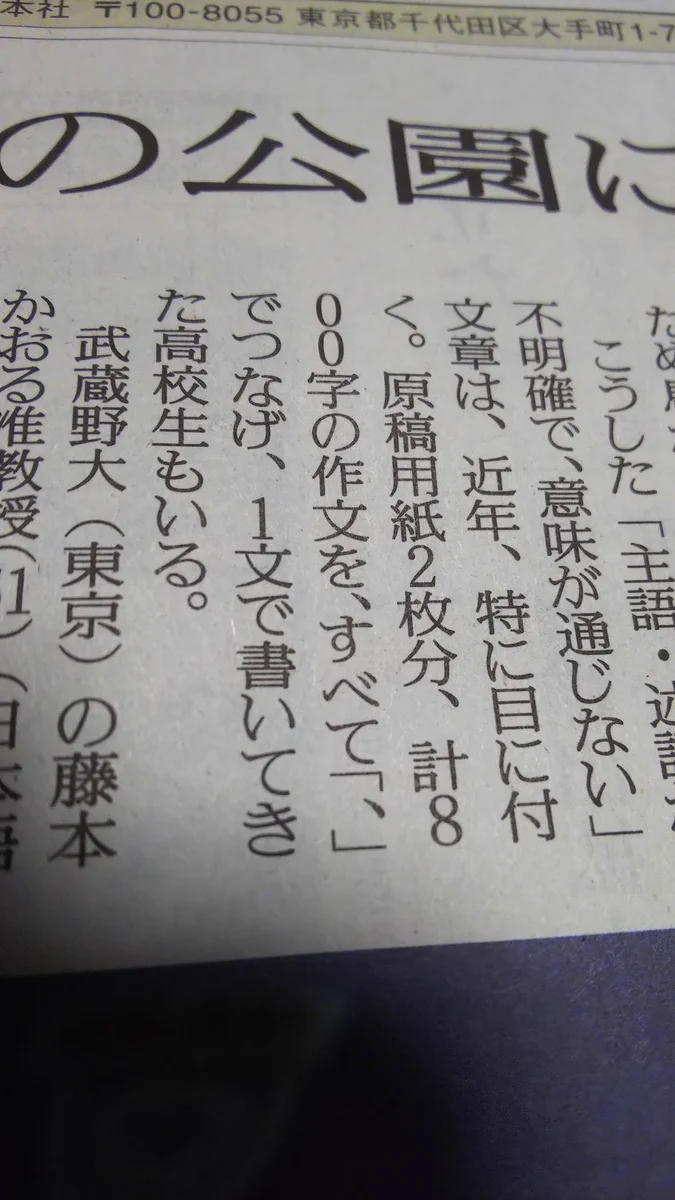 本社 〒100-8055 東京都千代田区大手町1-7
の公園に
こうした「主語・述語が
不明確で、意味が通じない」
文章は、近年、特に目に付
く。原稿用紙2枚分、計8
00字の作文を、すべて「、」
でつなげ、1文で書いてき
た高校生もいる。
武蔵野大（東京）の藤本
かおる准教授